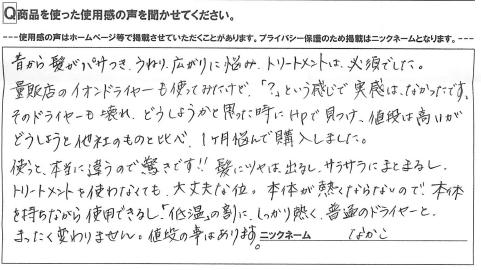 Q商品を使った使用感の声を聞かせてください。
---使用感の声はホームページ等で掲載させていただくことがあります。プライバシー保護のため掲載はニックネームとなります。---
昔から髪がパサつき、うねり、広がりに悩み、トリートメントは、必須でした。
量販店のイオンドライヤーも使ってみたけど、「?」という感じで実感は、なかったです。
そのドライヤーも壊れ、どうしようかと思った時にHPで見つけ、値段は高いが
どうしようと他社のものと比べ、1ヶ月悩んで購入しました。
使うと、本当に違うので驚きです!! 髪にツヤは、出るし、サラサラにまとまるし、
トリートメントを使わなくても、大丈夫な位。本体が熱くならないので、本体
を持ちながら使用できるし、「低温」の割に、しっかり熱く、普通のドライヤーと、
まったく変わりません。値段の事はあります。
ニックネーム なかこ